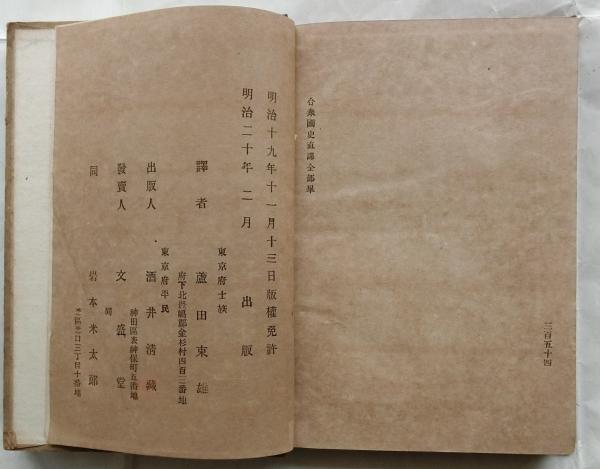 合衆國史直譯全部畢
三百五十四
明治十九年十一月十三日版權免許
明治二十年二月出版
東京府士族
譯者 蘆田束雄
府下北豊嶋郡金杉村四百三番地
東京府平民
出版人 酒井清藏
神田區表神保町五番地
發賣人 文盛堂
同
同 岩本米太郎
芝區 口三丁目十番地